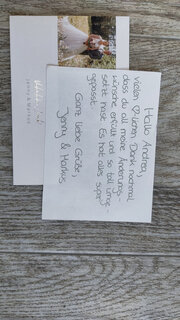 Hallo Andrea,
vielen lieben Dank nochmal
dass du all meine Änderungs-
wünsche erfüllt und so toll umge-
setzt hast. Es hat alles super
gepasst.
Ganz liebe Grüße,
Jenny & Markus